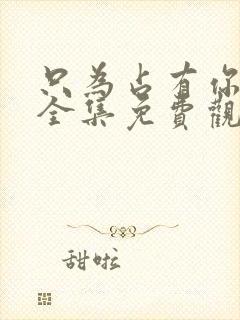 只為占有你
全集免費觀
甜啦